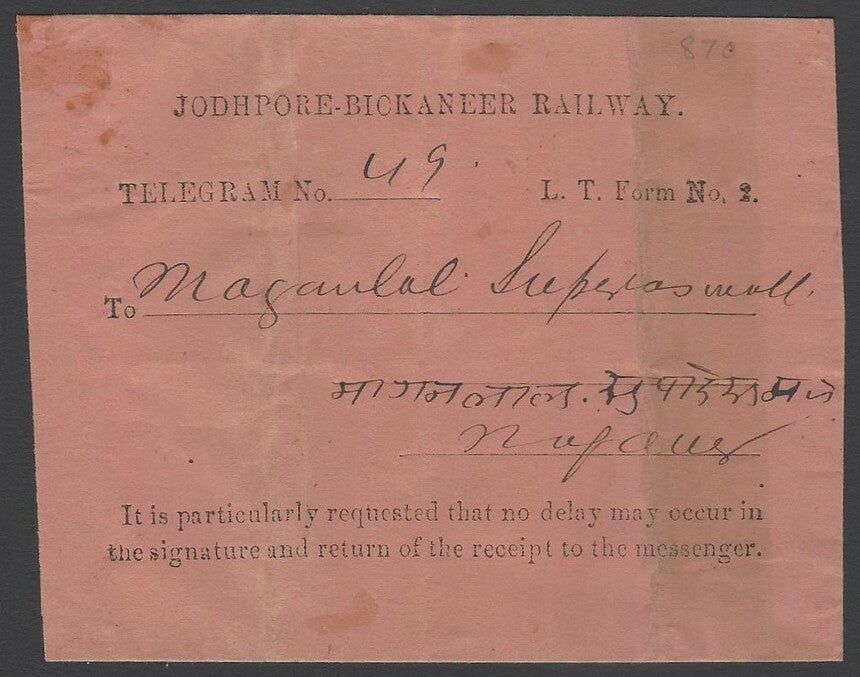 870
JODHPORE-BICKANEER RAILWAY.
TELEGRAM No. 49.
L. T. Form No. 2.
To Maganlal
मागनलाल.
It is particularly requested that no delay may occur in
the signature and return of the receipt to the messenger.